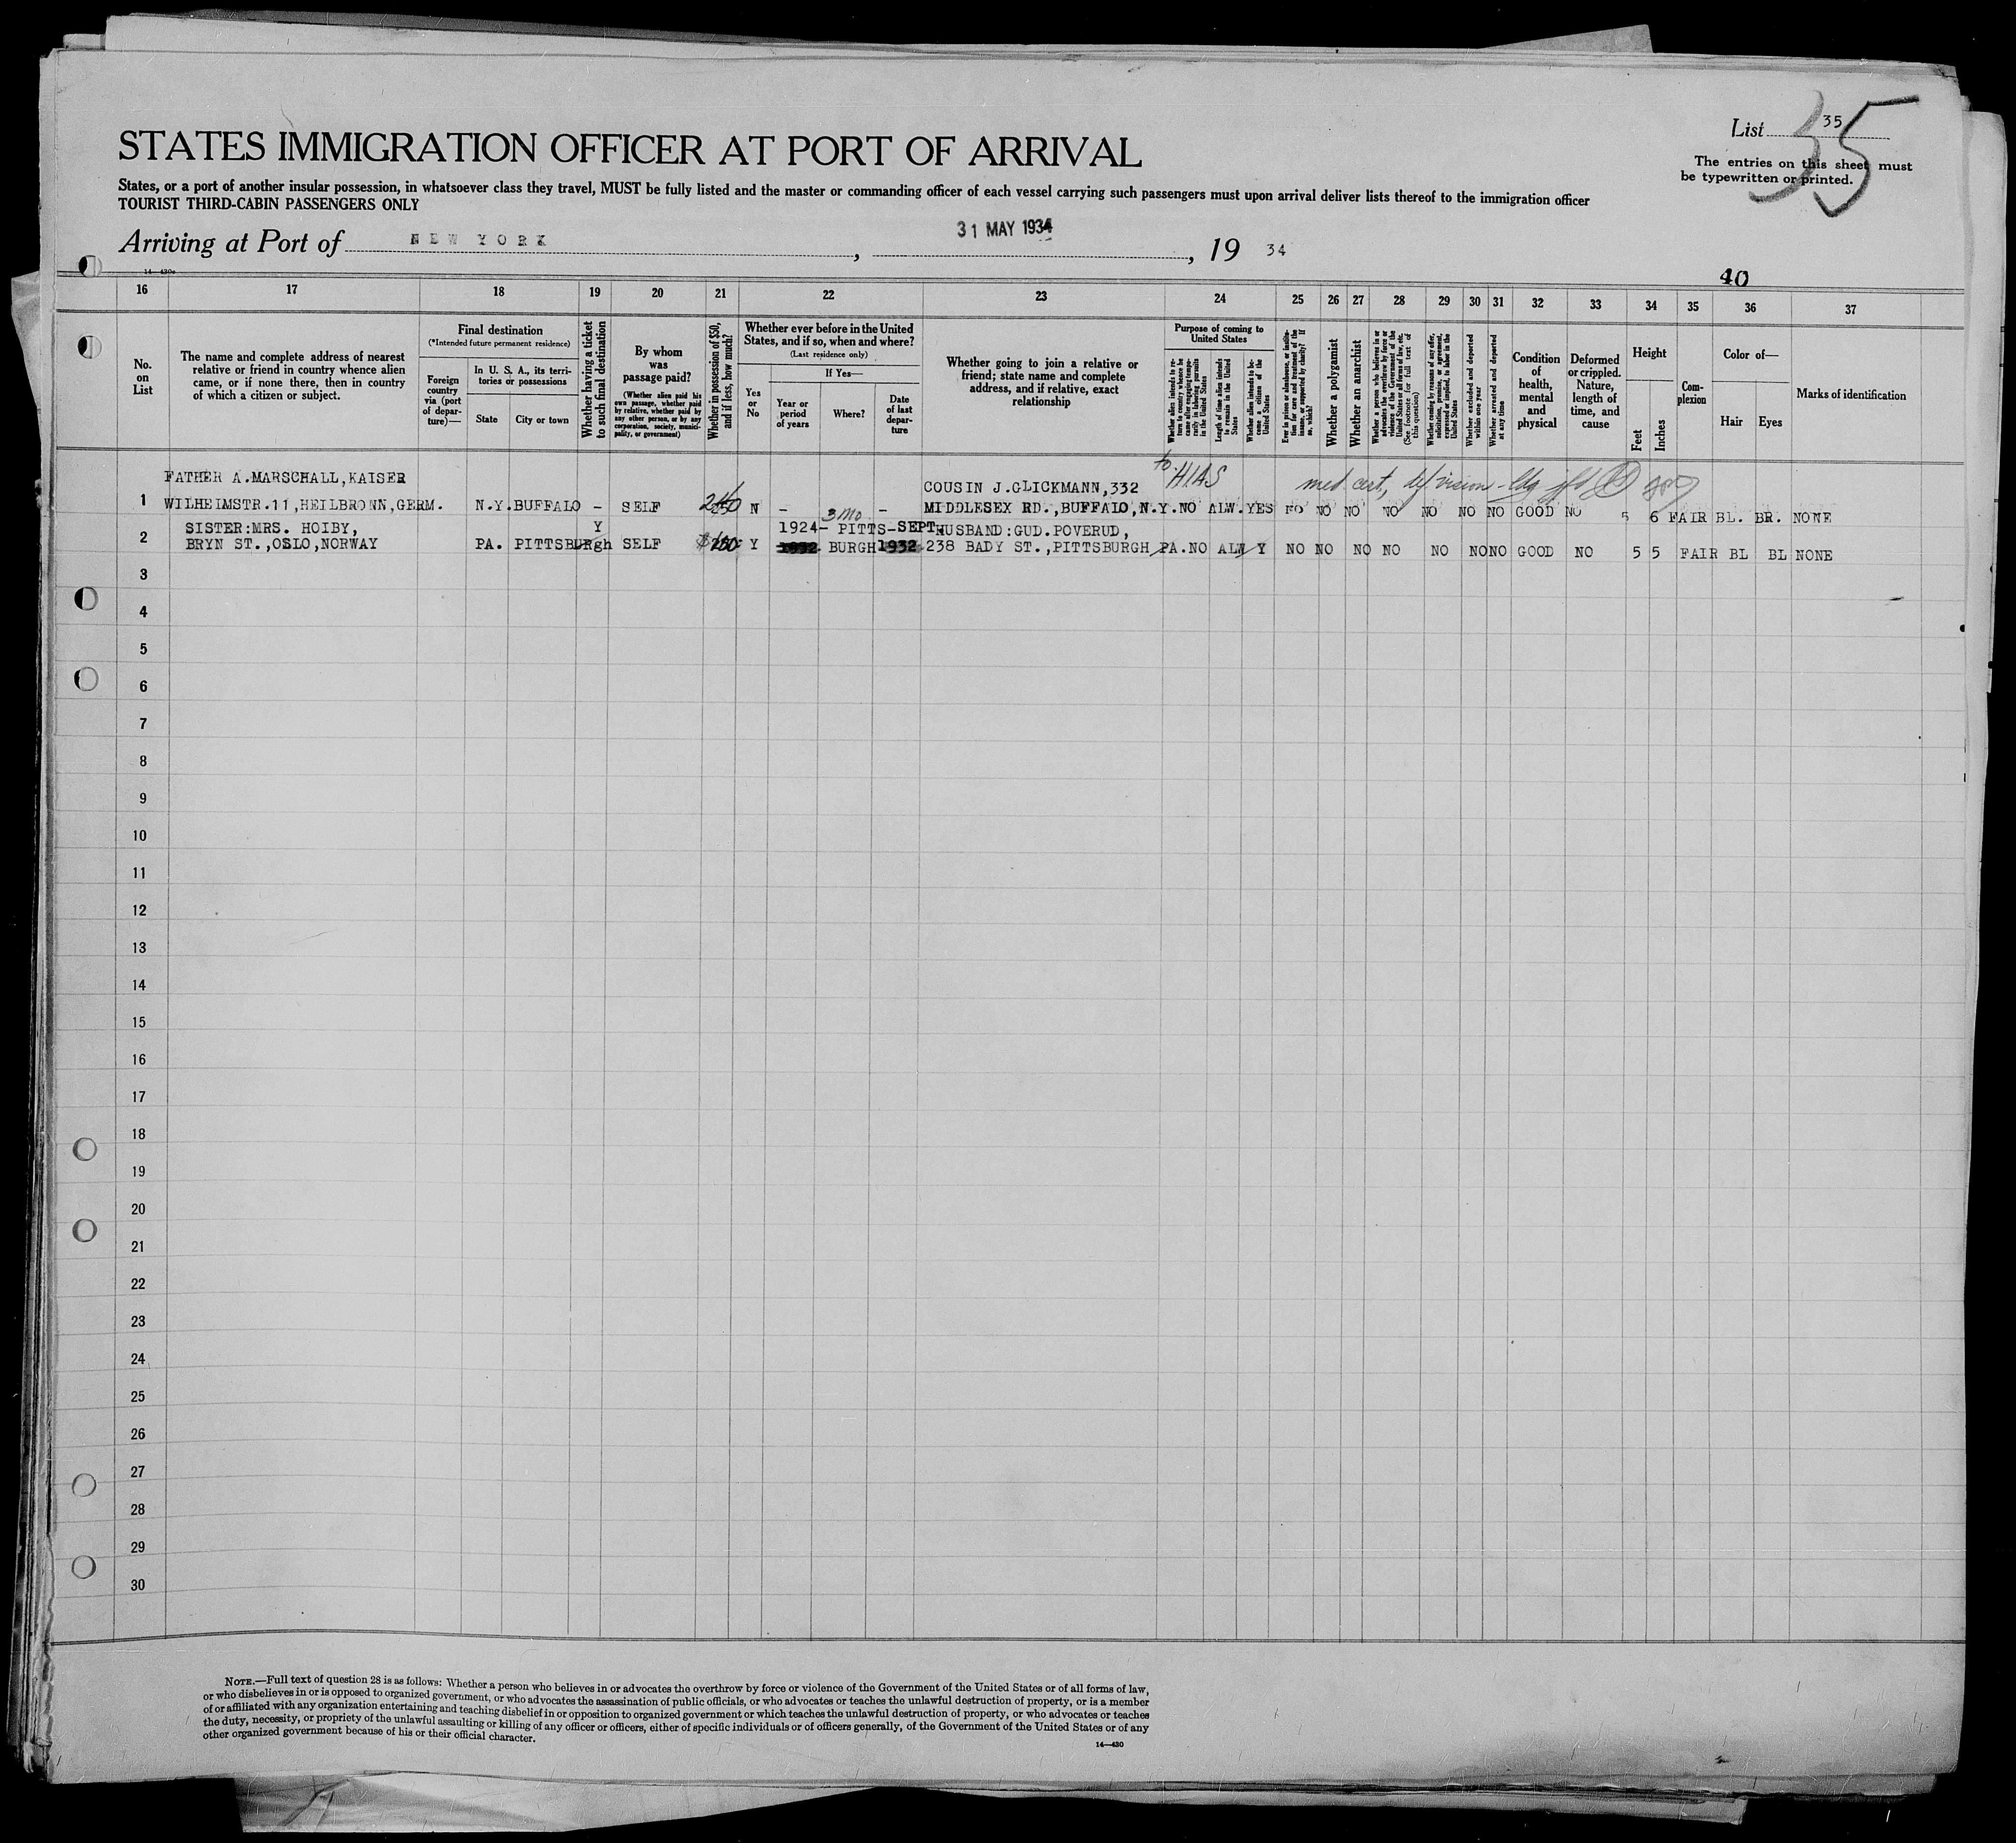 List 35
35
The entries on this sheet must
be typewritten or printed.
STATES IMMIGRATION OFFICER AT PORT OF ARRIVAL
States, or a port of another insular possession, in whatsoever class they travel, MUST be fully listed and the master or commanding officer of each vessel carrying such passengers must upon arrival deliver lists thereof to the immigration officer
TOURIST THIRD-CABIN PASSENGERS ONLY
Arriving at Port of NEW YORK, 31 MAY 1934, 19 34
14—430a
40
16 17 18 19 20 21 22 23 24 25 26 27 28 29 30 31 32 33 34 35 36 37
No. on List
The name and complete address of nearest relative or friend in country whence alien came, or if none there, then in country of which a citizen or subject.
Final destination
(*Intended future permanent residence)
Foreign country via (port of departure)—
In U. S. A., its territories or possessions
State
City or town
Whether having a ticket to such final destination
By whom was passage paid?
(Whether alien paid his own passage, whether paid by relative, whether paid by any other person, or by any corporation, society, municipality, or government)
Whether in possession of $50, and if less, how much?
Whether ever before in the United States, and if so, when and where?
(Last residence only)
Yes or No
If Yes—
Year or period of years
Where?
Date of last departure
Whether going to join a relative or friend; state name and complete address, and if relative, exact relationship
Purpose of coming to United States
Whether alien intends to return to country whence he came after engaging temporarily in laboring pursuits in the United States
Length of time alien intends to remain in the United States
Whether alien intends to become a citizen of the United States
Ever in prison or almshouse, or institution for care and treatment of the insane, or supported by charity? If so, which?
Whether a polygamist
Whether an anarchist
Whether a person who believes in or advocates the overthrow by force or violence of the Government of the United States or all forms of law, etc. (See footnote for full text of this question)
Whether coming by reason of any offer, solicitation, promise, or agreement, expressed or implied, to labor in the United States
Whether excluded and deported within one year
Whether arrested and deported at any time
Condition of health, mental and physical
Deformed or crippled. Nature, length of time, and cause
Height
Feet
Inches
Complexion
Color of—
Hair
Eyes
Marks of identification
to HIAS
med cert,
vision
FATHER A.MARSCHALL,KAISER COUSIN J.GLICKMANN,332
1 WILHELMSTR.11,HEILBRONN,GERM. N.Y.BUFFALO - SELF N - - MIDDLESEX RD.,BUFFALO,N.Y.NO ALW.YES NO NO NO NO NO NO NO GOOD NO 5 6 FAIR BL. BR. NONE
3 mo
SISTER:MRS. HOIBY, Y 1924- PITTS-SEPT HUSBAND:GUD.POVERUD,
2 BRYN ST.,OSLO,NORWAY PA. PITTSBURgh SELF Y 1932 BURGH 1932 238 BADY ST.,PITTSBURGH PA.NO ALW Y NO NO NO NO NO NO NO GOOD NO 5 5 FAIR BL BL NONE
3
4
5
6
7
8
9
10
11
12
13
14
15
16
17
18
19
20
21
22
23
24
25
26
27
28
29
30
NOTE.—Full text of question 28 is as follows: Whether a person who believes in or advocates the overthrow by force or violence of the Government of the United States or of all forms of law,
or who disbelieves in or is opposed to organized government, or who advocates the assassination of public officials, or who advocates or teaches the unlawful destruction of property, or is a member
of or affiliated with any organization entertaining and teaching disbelief in or opposition to organized government or which teaches the unlawful destruction of property, or who advocates or teaches
the duty, necessity, or propriety of the unlawful assaulting or killing of any officer or officers, either of specific individuals or of officers generally, of the Government of the United States or of any
other organized government because of his or their official character.
14—430